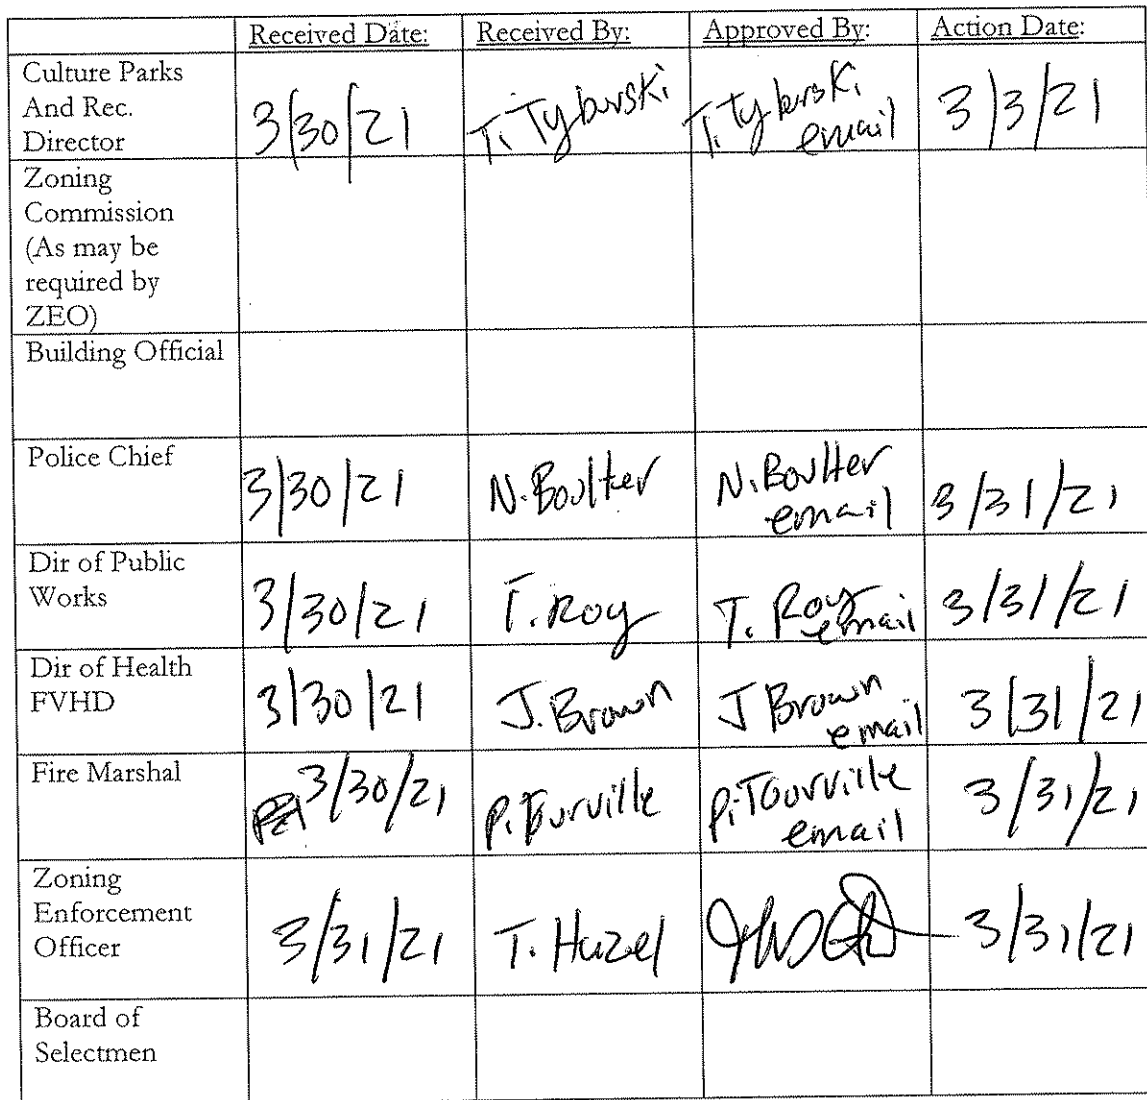 Received Date: Received By: Approved By: Action Date:
Culture Parks
And Rec.
Director
3/30/21 T. Tyburski T. Tyburski
email 3/3/21
Zoning
Commission
(As may be
required by
ZEO)
Building Official
Police Chief
3/30/21 N. Boulter N. Boulter
email 3/31/21
Dir of Public
Works
3/30/21 T. Roy T. Roy
email 3/31/21
Dir of Health
FVHD
3/30/21 J. Brown J Brown
email 3/31/21
Fire Marshal
3/30/21 P. Tourville P. Tourville
email 3/31/21
Zoning
Enforcement
Officer
3/31/21 T. Hazel 3/31/21
Board of
Selectmen